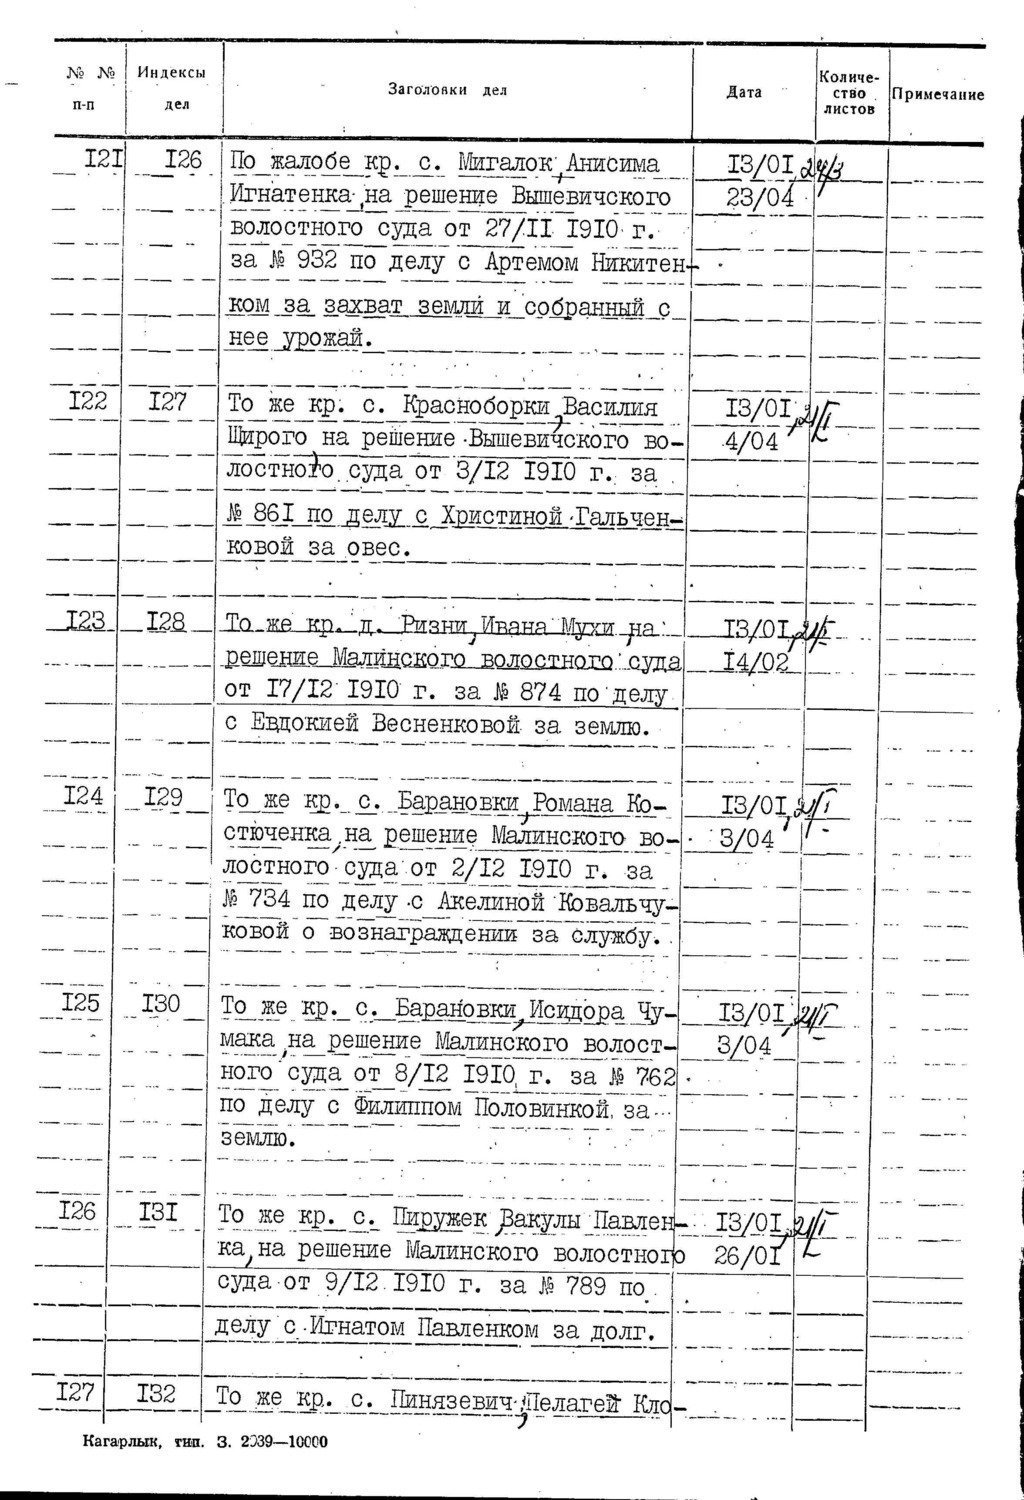 № № Индексы Заголовки дел Дата Количе-
п-п дел ство
листов Примечание
121 126 По жалобе кр. с. Мигалок, Анисима 13/01,
Игнатенка, на решение Вышевичского 23/04
волостного суда от 27/II 1910 г.
за № 932 по делу с Артемом Никитен-
ком за захват земли и собранный с
нее урожай.
122 127 То же кр. с. Красноборки, Василия 13/01, 21/I
Щирого, на решение Вышевичского во- 4/04
лостного суда от 3/12 1910 г. за
№ 861 по делу с Христиной Гальчен-
ковой за овес.
123 128 То же кр. д. Ризни, Ивана Мухи, на 13/01, 21/I
решение Малинского волостного суда 14/02
от 17/12 1910 г. за № 874 по делу
с Евдокией Весненковой за землю.
124 129 То же кр. с. Барановки, Романа Ко- 13/01, 21/I
стюченка, на решение Малинского во- 3/04
лостного суда от 2/12 1910 г. за
№ 734 по делу с Акелиной Ковальчу-
ковой о вознаграждении за службу.
125 130 То же кр. с. Барановки, Исидора Чу- 13/01, 21/I
мака, на решение Малинского волост- 3/04
ного суда от 8/12 1910 г. за № 762
по делу с Филиппом Половинкой, за
землю.
126 131 То же кр. с. Пиружек, Вакулы Павлен- 13/01, 21/I
ка, на решение Малинского волостного 26/01
суда от 9/12 1910 г. за № 789 по
делу с Игнатом Павленком за долг.
127 132 То же кр. с. Пинязевич, Пелагей Кло-
Кагарлык, тип. З. 2939—10000